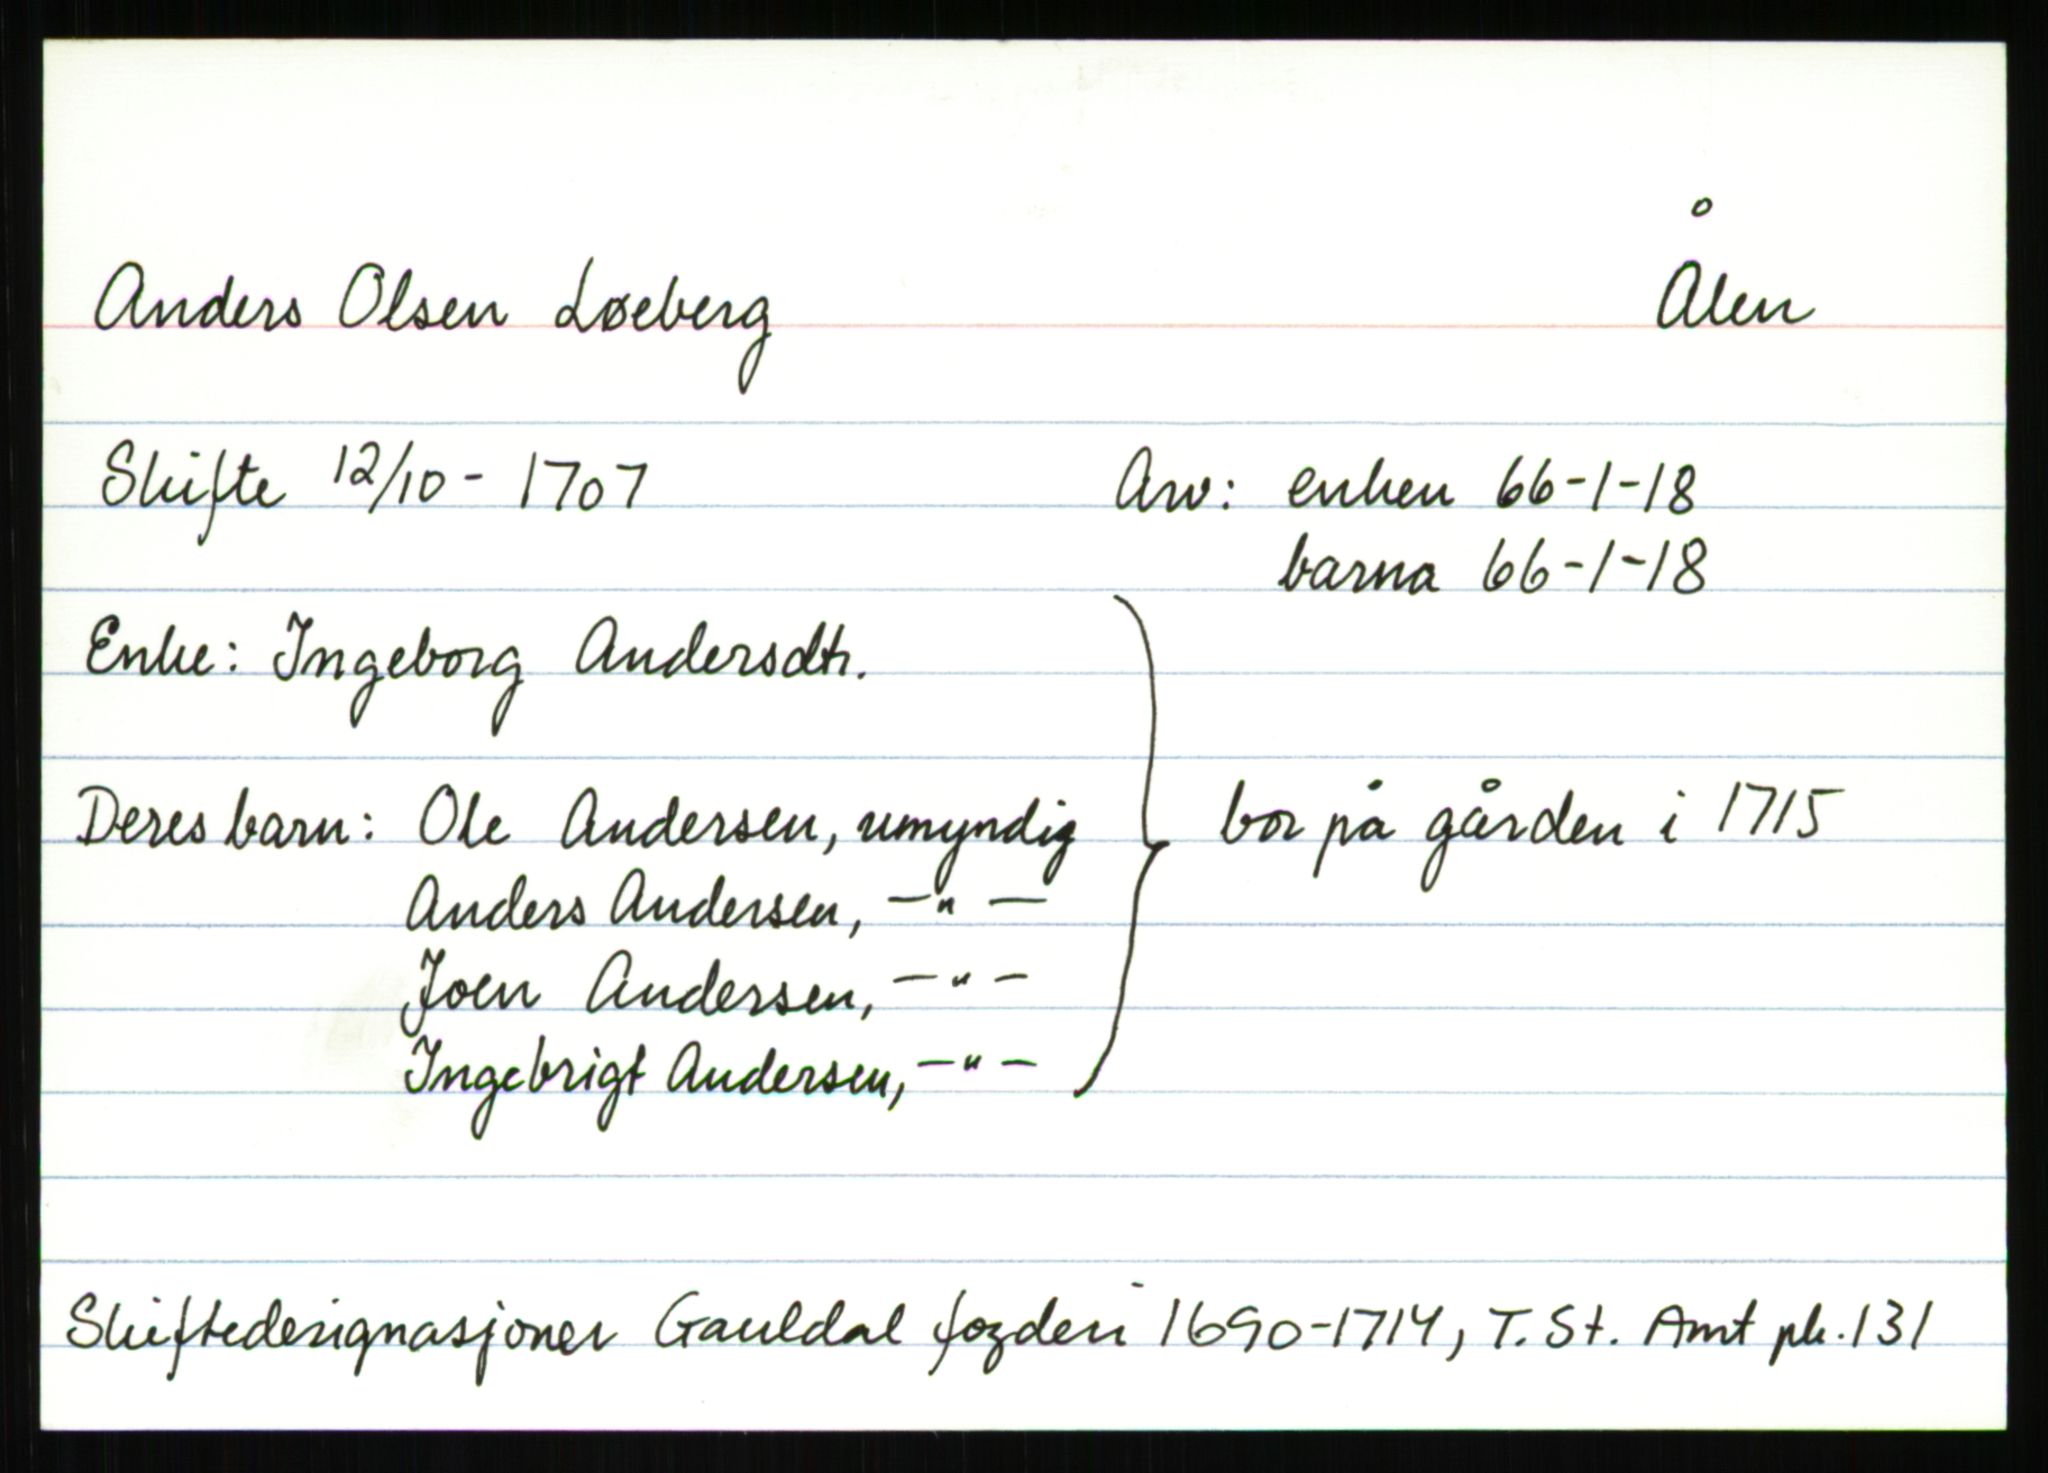 Anders Olsen Løeberg Ålen
Skifte 12/10 - 1707 Arv: enken 66-1-18
barna 66-1-18
Enke: Ingeborg Andersdtr.
Deres barn: Ole Andersen, umyndig } bor på gården i 1715
Anders Andersen, —"—
Joen Andersen, —"—
Ingebrigt Andersen, —"—
Skiftedesignasjoner Gauldal fogderi 1690-1714, T. St. Amt pk. 131